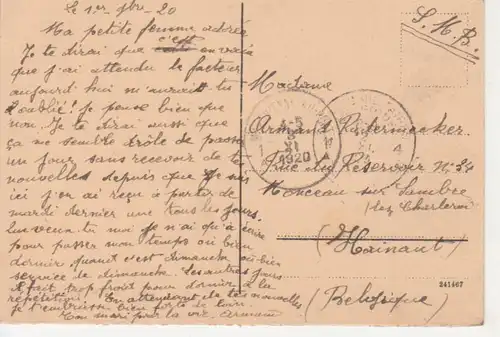 le 1er 9bre - 20
Ma petite femme adorée
Je te dirai que c'est en vain
que j'ai attendu le facteur
aujourd'hui n'aurait tu
oublié! Je pense bien que
non. Je te dirai aussi que
ça me semble drôle de passer
un jour sans recevoir de tes
nouvelles depuis que je suis
ici j'en ai reçu à partir de
mardi dernier une tous les jours.
tu moi je n'ai qu'à écrire
pour passer mon temps ou bien
dormir quant c'est dimanche ou bien
service de dimanche. Les autres jours
il fait trop froid pour dormir à la
répétition! En attendant de tes nouvelles
je t'embrasse bien fort de loin.
Ton mari pour la vie. Armand
S.M.B.
Madame
Armand Radermecker
Rue du Réservoir N° 34
Monceau sur Sambre
(lez Charleroi)
(Hainaut)
(Belgique)
4-5
3
XI
1920
241467